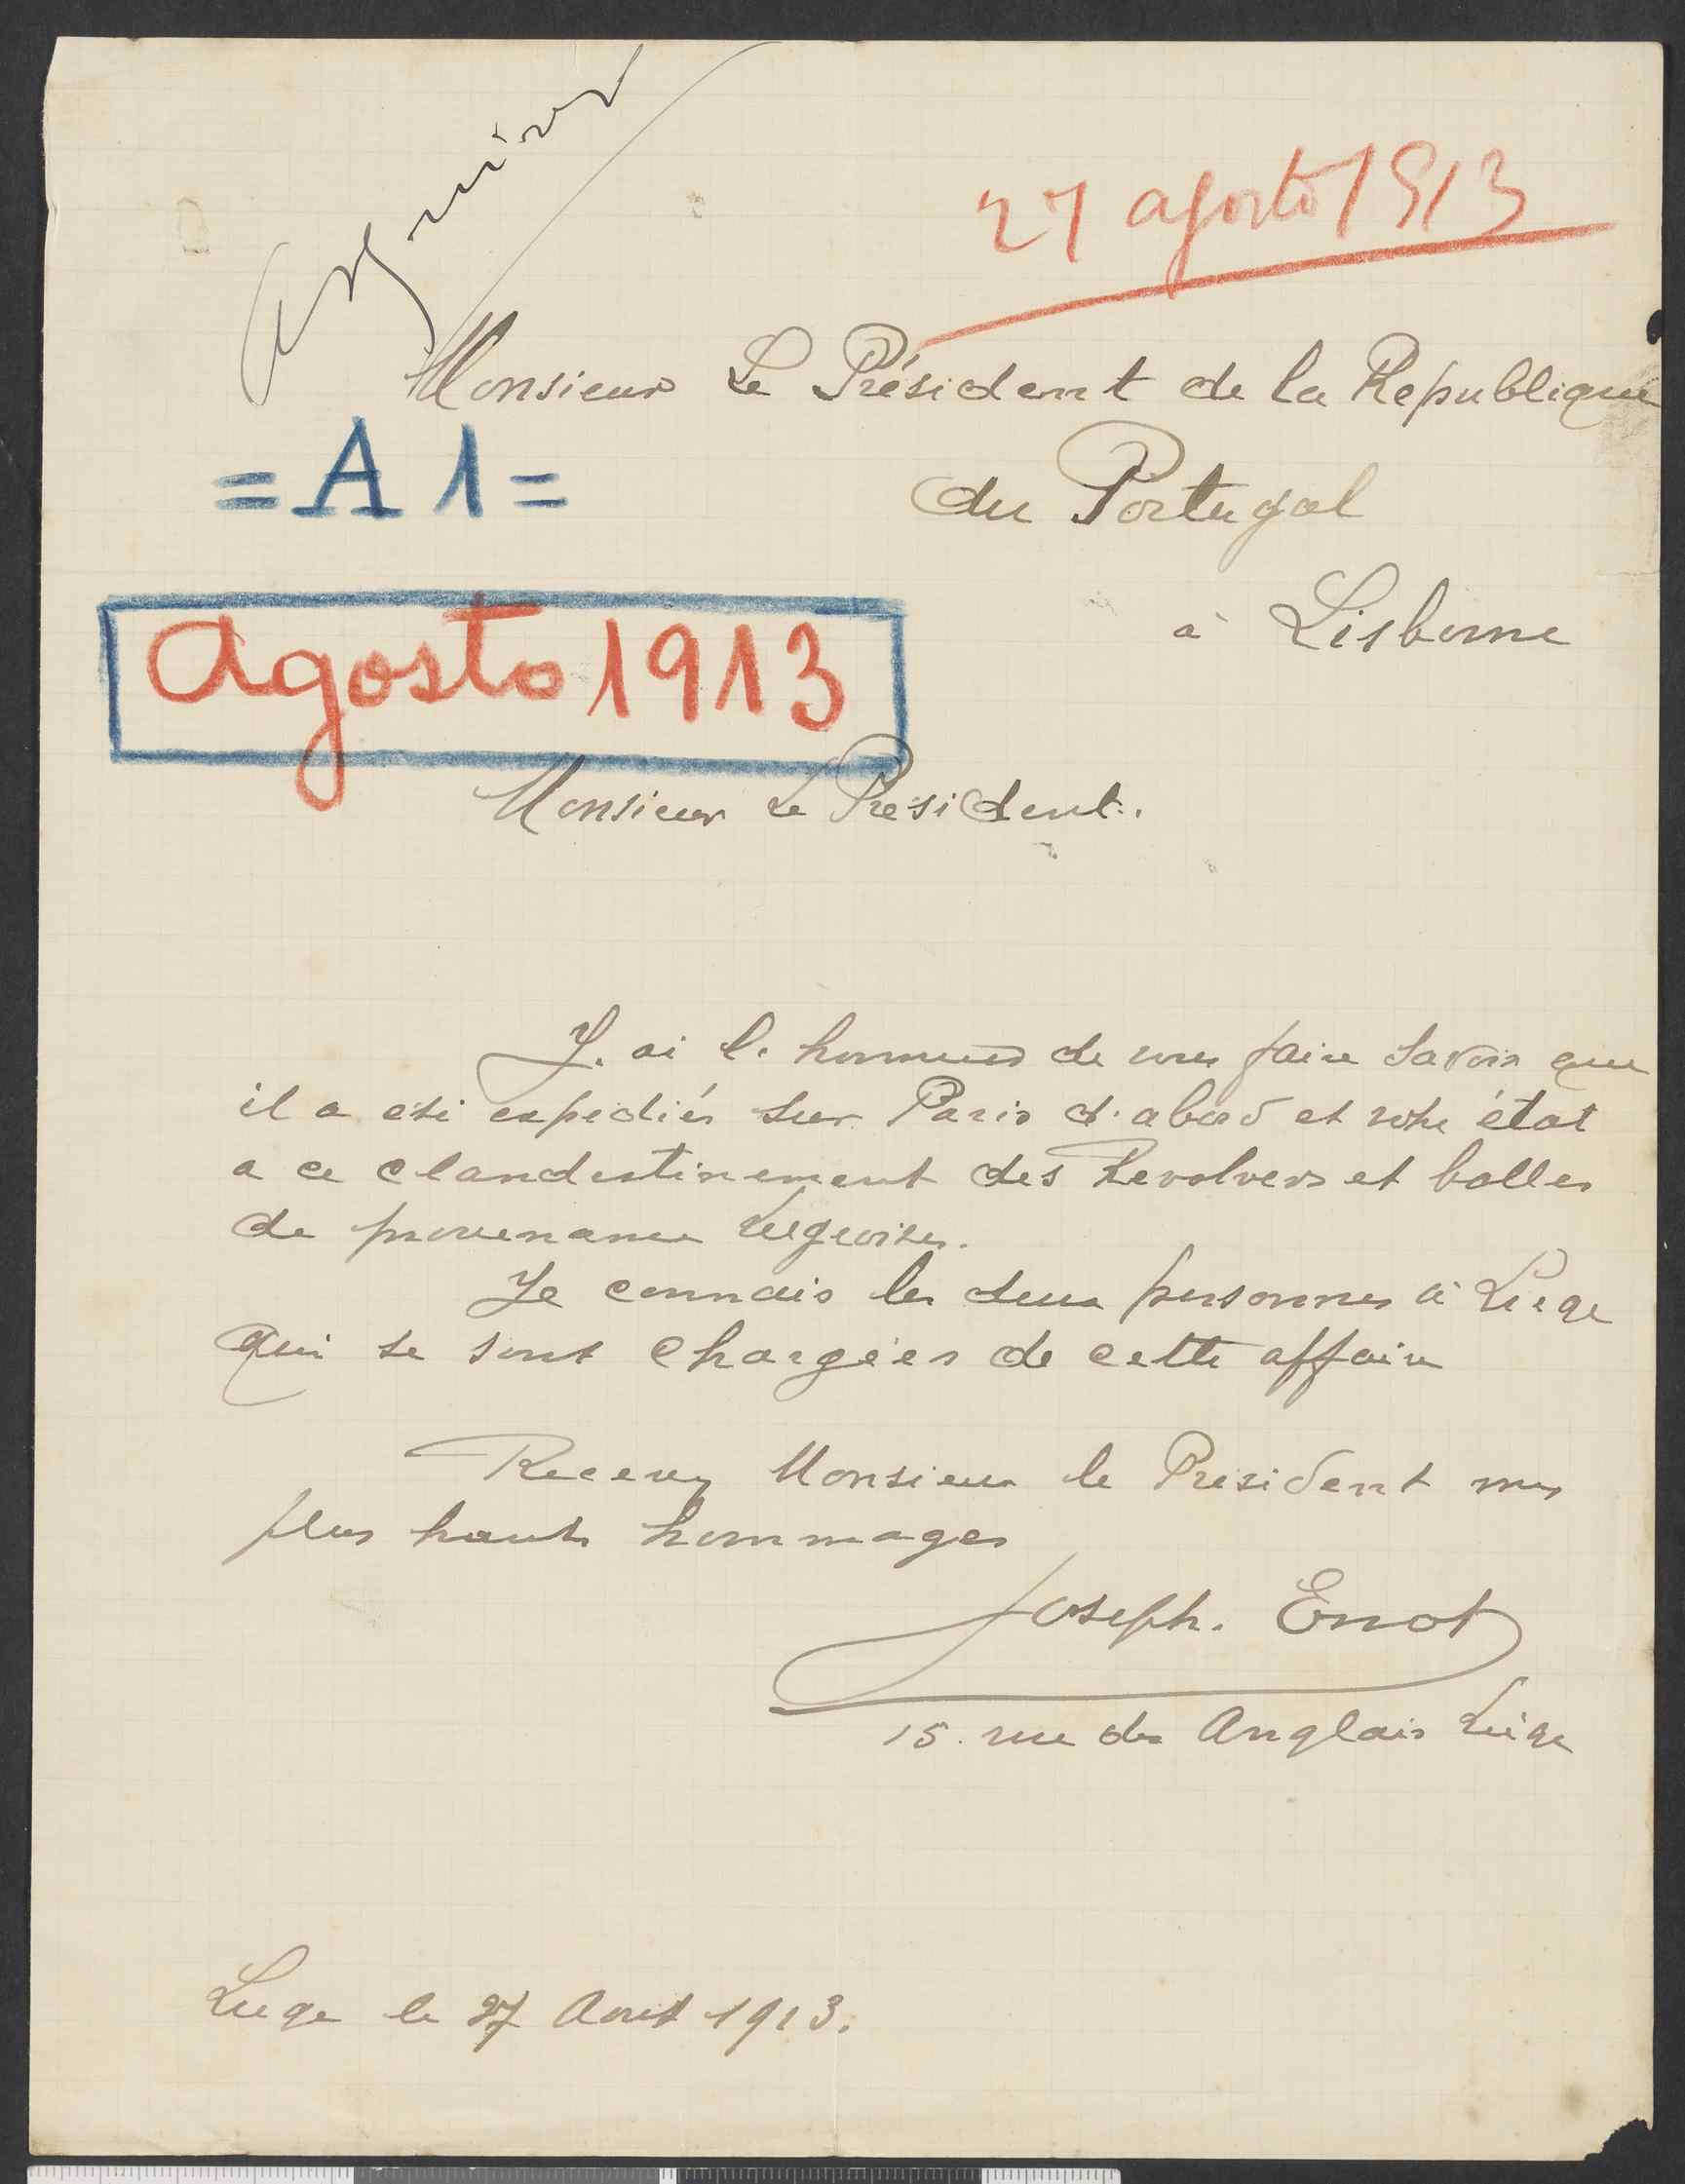 Arquivar
27 agosto 1913
Monsieur Le Président de la Republique
= A 1 =
du Portugal
à Lisbonne
Agosto 1913
Monsieur Le Président.
J. ai l. honneur de vous faire savoir que
il a été expediés sur Paris d. abord et votre état
a ce clandestinement des Revolvers et balles
de provenance liegeoises.
Je connais les deux personnes à Liége
qui se sont chargées de cette affaire
Recevez Monsieur le Président mes
plus hauts hommages
Joseph. Enot
15. rue des Anglais Liége
Liege le 27 Aout 1913.